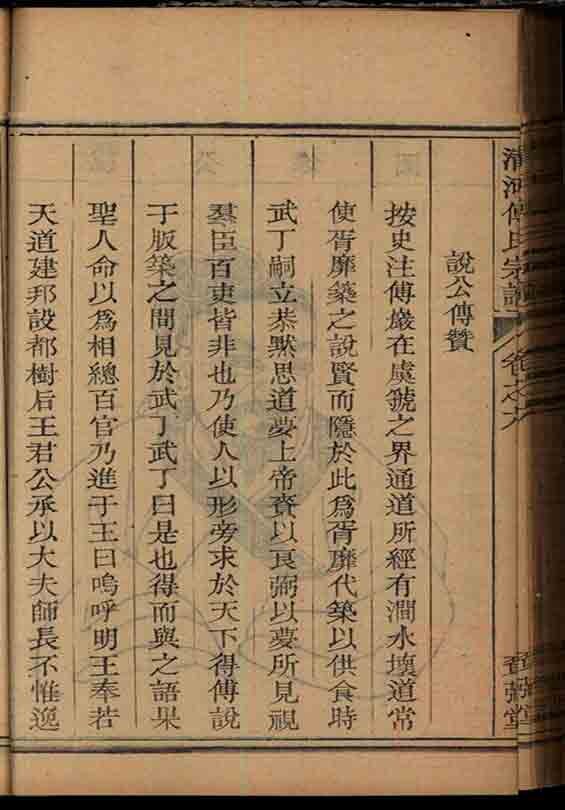 清河傅氏宗譜
卷之六
賚弼堂
說公傳贊
按史注傅巖在虞虢之界通道所經有澗水壞道常
使胥靡築之說賢而隱於此爲胥靡代築以供食時
武丁嗣立恭默思道夢上帝賚以良弼以夢所見視
羣臣百吏皆非也乃使人以形旁求於天下得傅說
于版築之間見於武丁武丁曰是也得而與之語果
聖人命以爲相總百官乃進于王曰嗚呼明王奉若
天道建邦設都樹后王君公承以大夫師長不惟逸